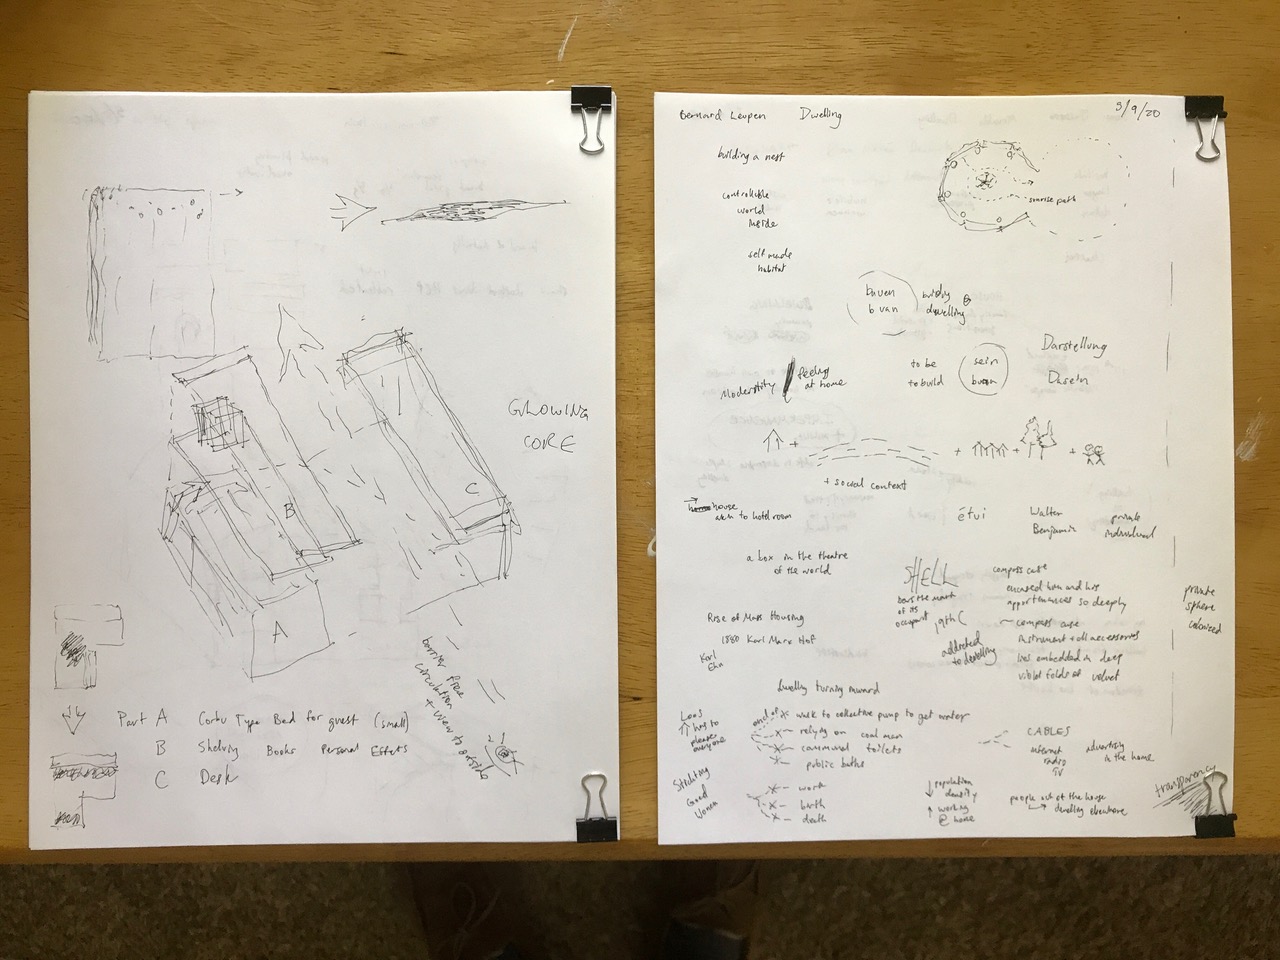 GLOWING
CORE
C
B
A
barrier free
circulation
+ view to outside
Part A Corbu Type Bed for guest (small)
B Shelving Books Personal Effects
C Desk
Bernard Leupen Dwelling
3/9/20
building a nest
controllable
world
inside
self made
habitat
sunrise path
bauen
buan
dwelling
Darstellung
Dasein
to be
to build
sein
buan
Modernity
feeling
at home
+ social context
house
akin to hotel room
étui
Walter
Benjamin
private
individual
a box in the theatre
of the world
SHELL
bears the mark
of its
occupant
19th C
addicted
to dwelling
compass case
encased him and his
appurtenances so deeply
~ compass case
instrument + all accessories
lies embedded in deep
violet folds of velvet
private
sphere
colonised
Rise of Mass Housing
1880 Karl Marx Hof
Karl
Ehn
Dwelling turning inward
Loos
has to
please
everyone
end of
walk to collective pump to get water
relying on coal man
communal toilets
public baths
CABLES
internet
radio
TV
advertising
in the home
Stichting
Goed
Wonen
work
birth
death
↓ population
density
↑ working
@ home
people out of the house
dwelling elsewhere
transparency